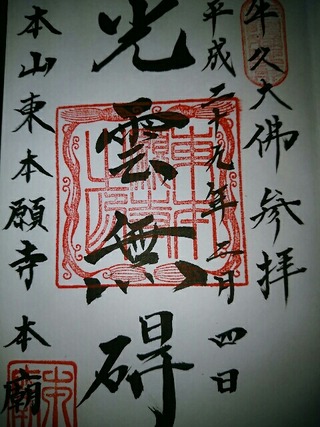 牛久大佛参拝
平成二十九年三月四日
光雲無碍
本山東本願寺本廟